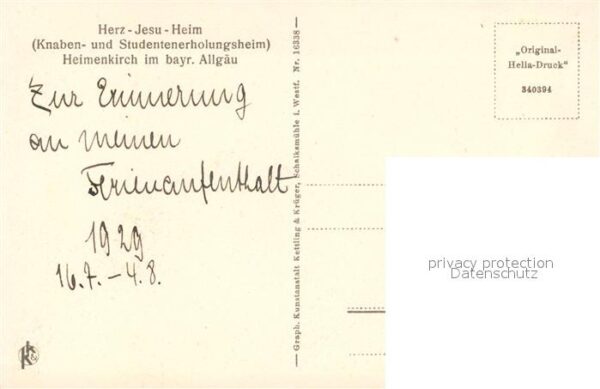 Herz-Jesu-Heim
(Knaben- und Studentenerholungsheim)
Heimenkirch im bayr. Allgäu
Zur Erinnerung
an meinen
Ferienaufenthalt
1929
16.7. – 4.8.
K & K
— Graph. Kunstanstalt Kettling & Krüger, Schalksmühle i. Westf. Nr. 16338 —
„Original-
Hella-Druck"
340394
privacy protection
Datenschutz